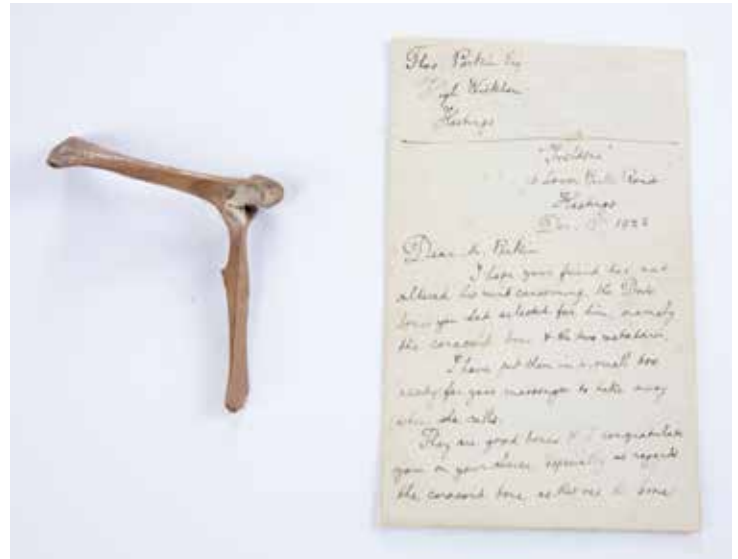 Thos Parkin Esq
High Wickham
Hastings
Hastings
1923
Dear Mr Parkin
I hope your friend has not
altered his mind concerning the Dodo
bones you had selected for him namely
the coracoid bone & the two metatarsi.
I have put them in a small box
ready for your messenger to take away
when she calls.
They are good bones & I congratulate
you on your choice especially as regards
the coracoid bone as that one is some